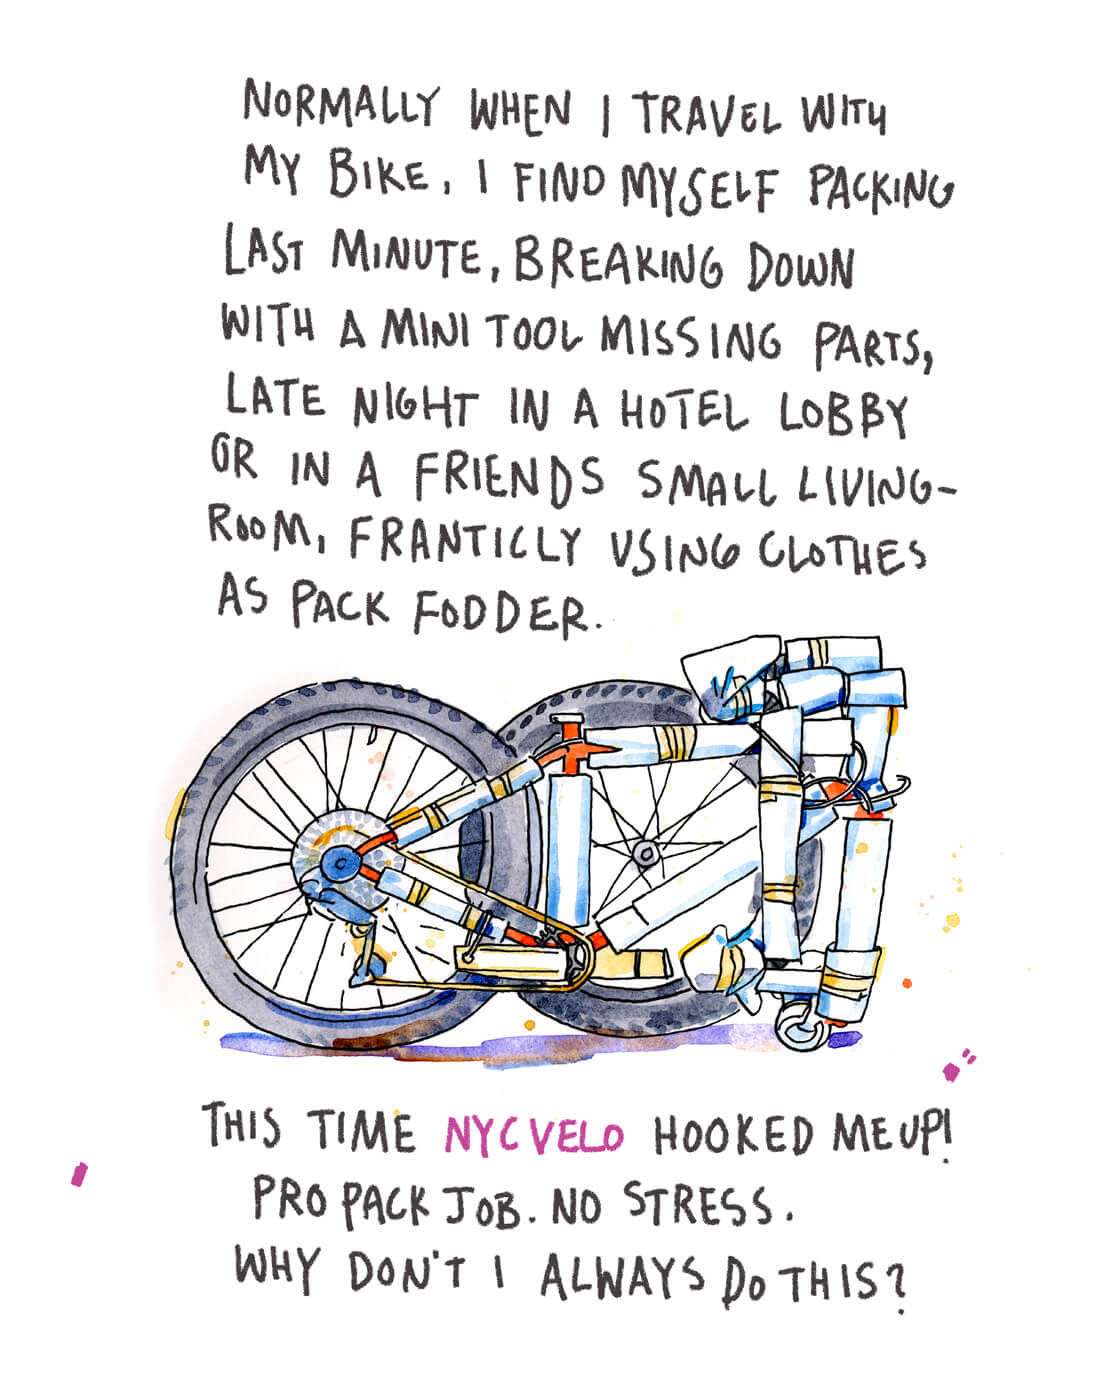 NORMALLY WHEN I TRAVEL WITH
MY BIKE, I FIND MYSELF PACKING
LAST MINUTE, BREAKING DOWN
WITH A MINI TOOL MISSING PARTS,
LATE NIGHT IN A HOTEL LOBBY
OR IN A FRIENDS SMALL LIVING-
ROOM, FRANTICLY USING CLOTHES
AS PACK FODDER.
THIS TIME NYCVELO HOOKED ME UP!
PRO PACK JOB. NO STRESS.
WHY DON'T I ALWAYS DO THIS?